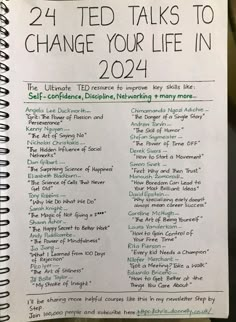 24 TED TALKS TO
CHANGE YOUR LIFE IN
2024
The Ultimate TED resource to improve key skills like:
Self-confidence, Discipline, Networking + many more...
Angela Lee Duckworth...
"Grit: The Power of Passion and
Perseverance"
Kenny Nguyen...
"The Art of Saying No"
Nicholas Christakis...
"The Hidden Influence of Social
Networks"
Dan Gilbert...
"The Surprising Science of Happiness"
Elizabeth Blackburn...
"The Science of Cells that Never
Get Old"
"Why We Do What We Do"
Sarah Knight...
"The Magic of Not Giving a F***"
Shawn Achor...
"The Happy Secret to Better Work"
Andy Puddicombe...
"The Power of Mindfulness"
Jia Jiang...
"What I Learned from 100 Days
of Rejection"
"The Art of Stillness"
Jill Bolte Taylor...
"My Stroke of Insight"
Chimamanda Ngozi Adichie...
"The Danger of a Single Story"
Andrew Tarvin...
"The Skill of Humor"
Stefan Sagmeister...
"The Power of Time OFF"
Derek Sivers...
"How to Start a Movement"
Simon Sinek...
"First Why and Then Trust"
"How Boredom Can Lead to
Your Most Brilliant Ideas"
David Epstein...
"Why specializing early doesn't
always mean career success"
Caroline McHugh...
"The Art of Being Yourself"
Laura Vanderkam...
"How to Gain Control of
Your Free Time"
Rita Pierson...
"Every Kid Needs a Champion"
Nilofer Merchant...
"Got a Meeting? Take a Walk"
"How to Get Better at the
Things You Care About"
I'll be sharing more helpful courses like this in my newsletter Step by
Step
Join 100,000 people and subscribe here